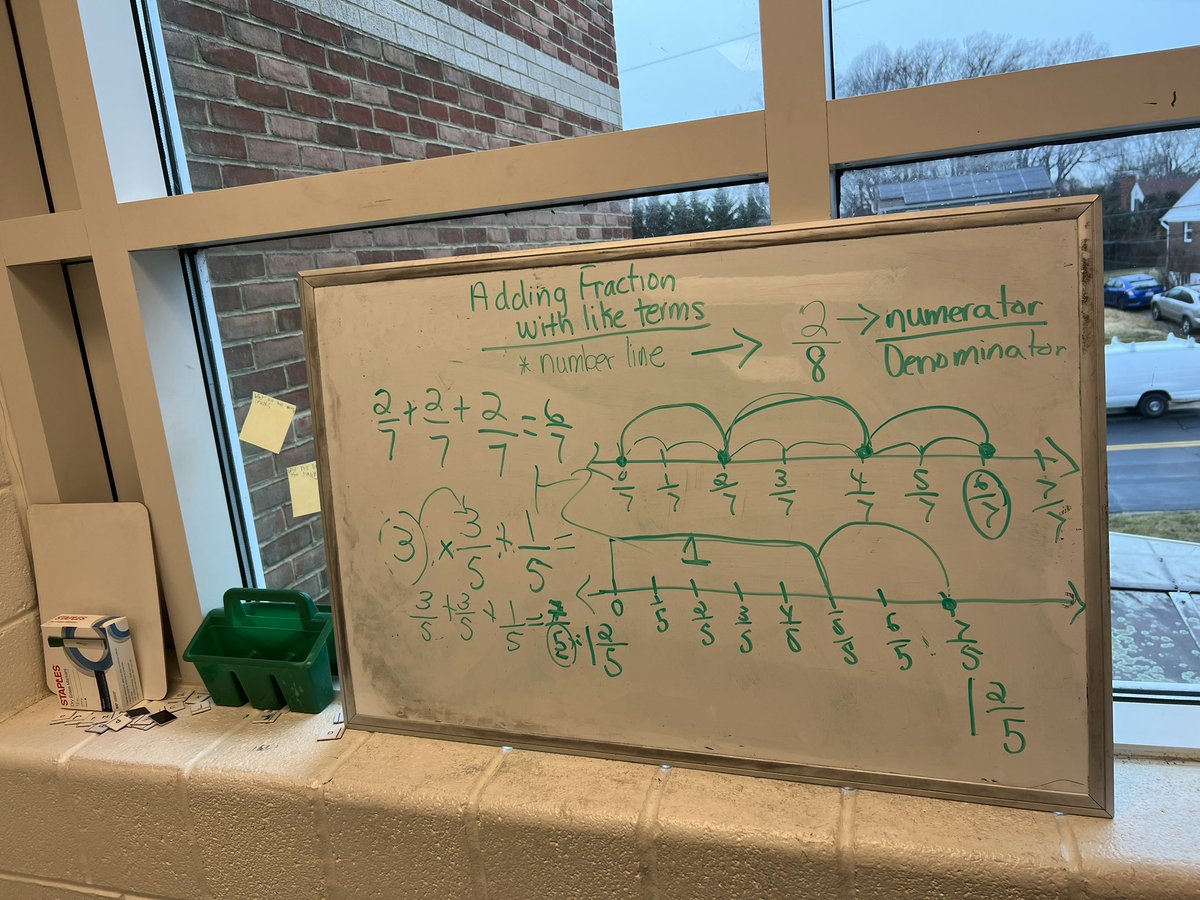 Adding Fraction
with like terms
* number line → 2/8 → numerator
Denominator
2/7 + 2/7 + 2/7 = 6/7
0/7 1/7 2/7 3/7 4/7 5/7 6/7 7/7
(3) × 3/5 + 1/5 =
1
0 1/5 2/5 3/5 4/5 5/5 6/5 7/5
3/5 + 3/5 + 1/5 = 7/5 = 1 2/5
1 2/5
STAPLES
STAPLES